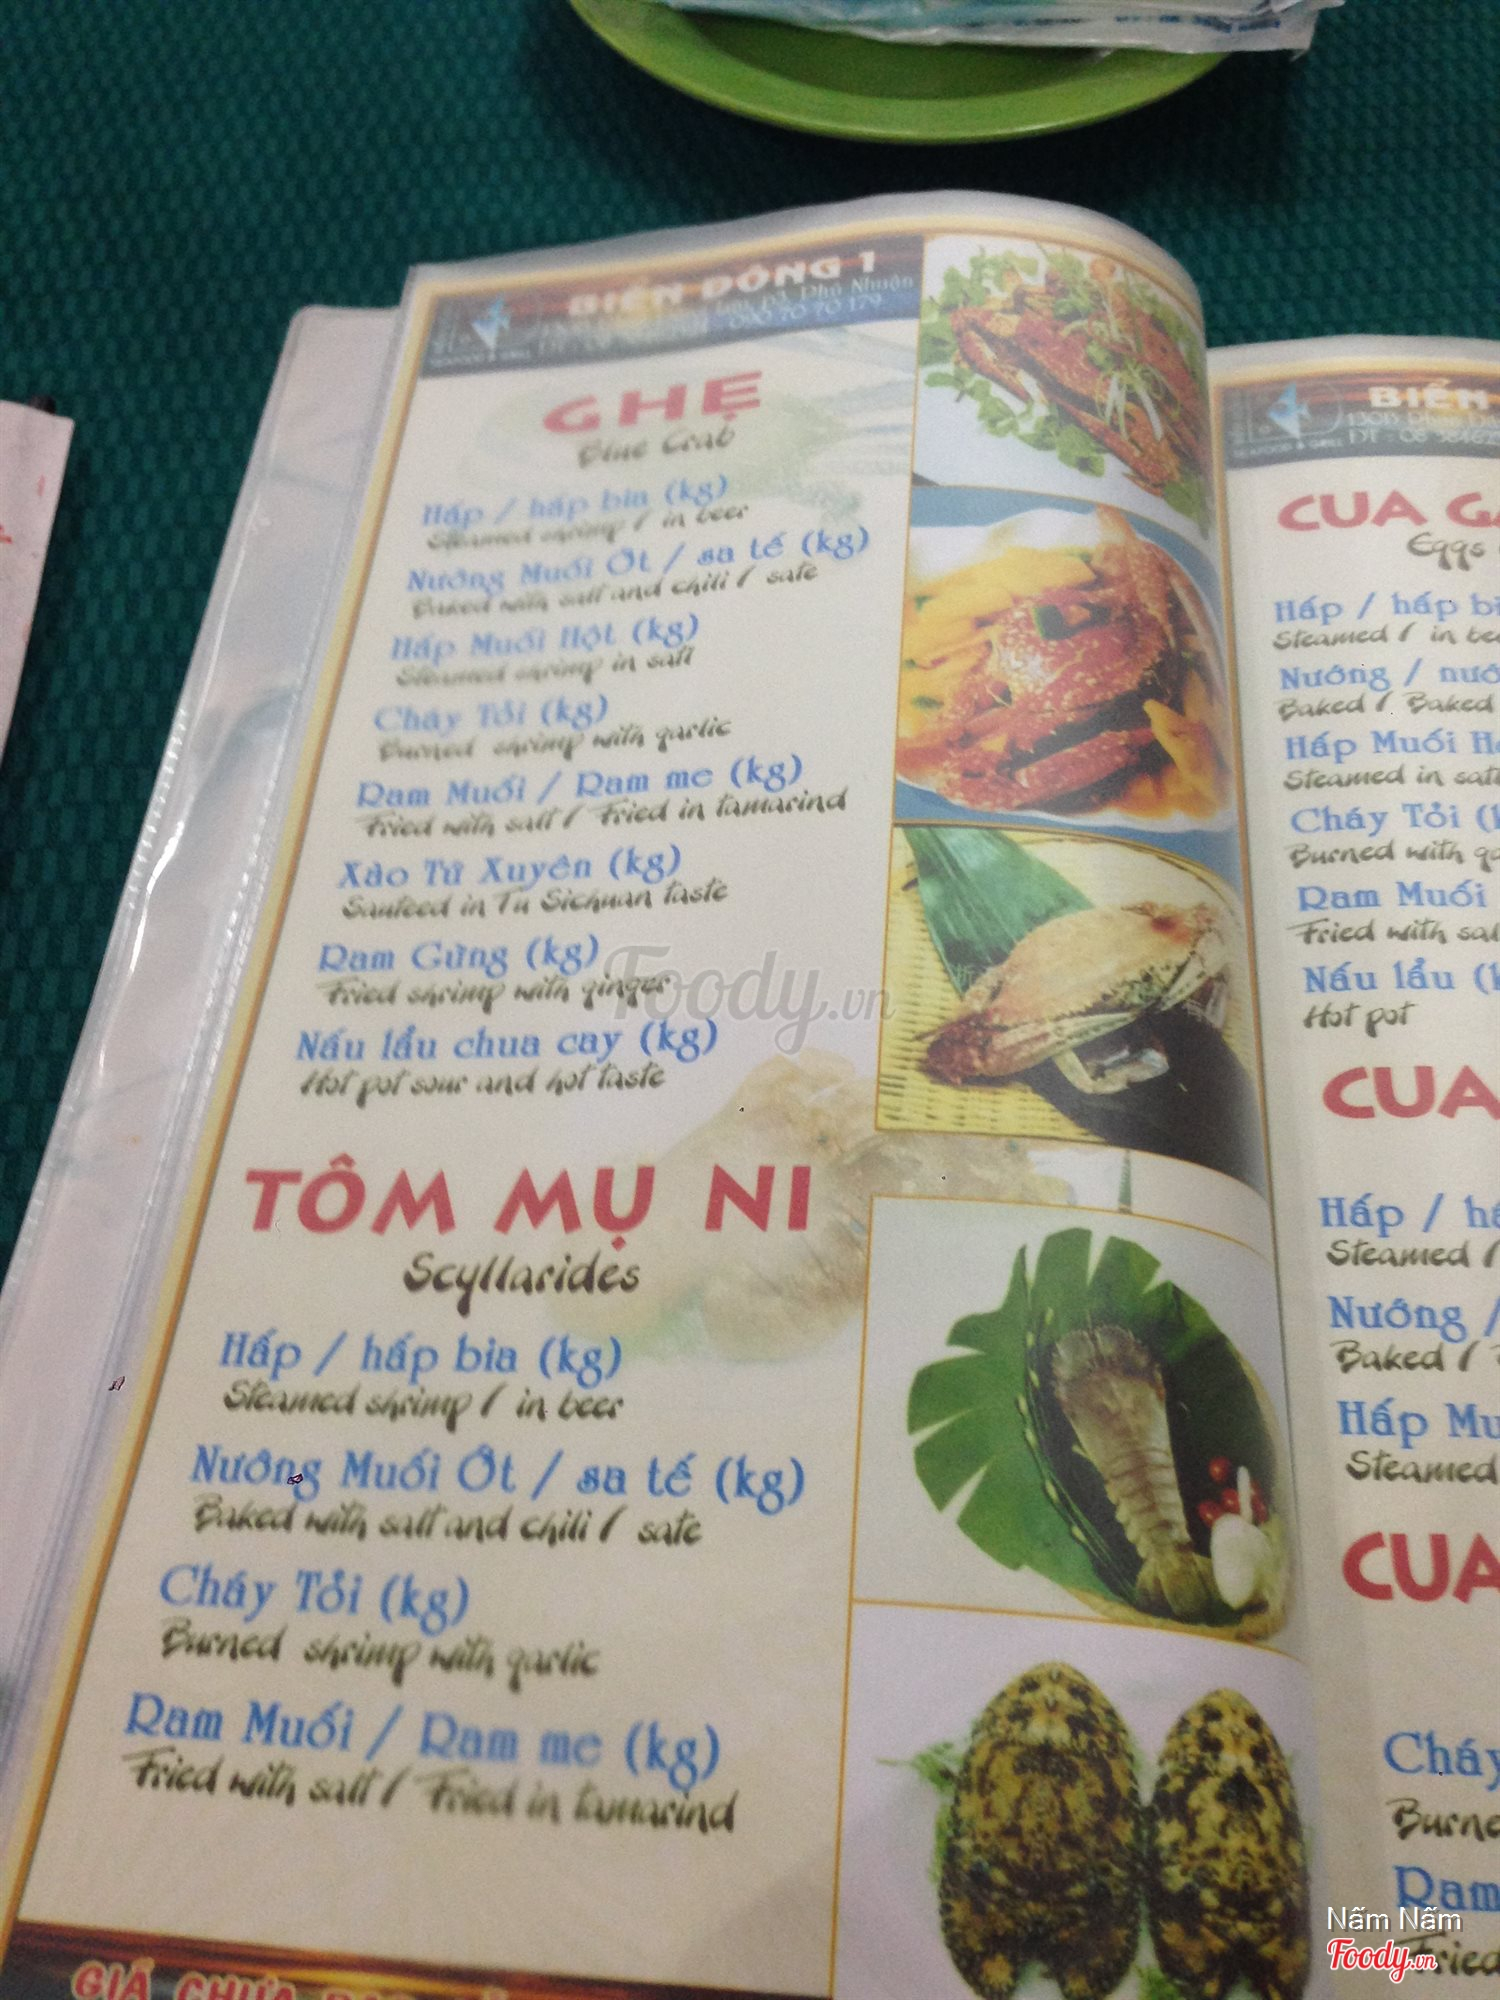 BIỂN ĐÔNG 1
Phú Nhuận
090 70 70 179
SEAFOOD & GRILL
GHẸ
Blue Crab
Hấp / hấp bia (kg)
Steamed shrimp / in beer
Nướng Muối Ớt / sa tế (kg)
Baked with salt and chili / sate
Hấp Muối Hột (kg)
Steamed shrimp in salt
Cháy Tỏi (kg)
Burned shrimp with garlic
Ram Muối / Ram me (kg)
Fried with salt / Fried in tamarind
Xào Tứ Xuyên (kg)
Sauteed in Tu Sichuan taste
Ram Gừng (kg)
Fried shrimp with ginger
Nấu lẩu chua cay (kg)
Hot pot sour and hot taste
TÔM MỤ NI
Scyllarides
Hấp / hấp bia (kg)
Steamed shrimp / in beer
Nướng Muối Ớt / sa tế (kg)
Baked with salt and chili / sate
Cháy Tỏi (kg)
Burned shrimp with garlic
Ram Muối / Ram me (kg)
Fried with salt / Fried in tamarind
GIÁ CHƯA
BIỂN
SEAFOOD & GRILL
CUA
Eggs
Hấp / hấp
Steamed / in
Nướng /
Baked / Baked
Hấp Muối
Steamed in
Cháy Tỏi
Burned with
Ram Muối
Fried with
Nấu lẩu
Hot pot
CUA
Hấp /
Steamed /
Nướng /
Baked /
Hấp
Steamed
CUA
Cháy
Ram
Fried
Foody.vn
Nấm Nấm
Foody.vn